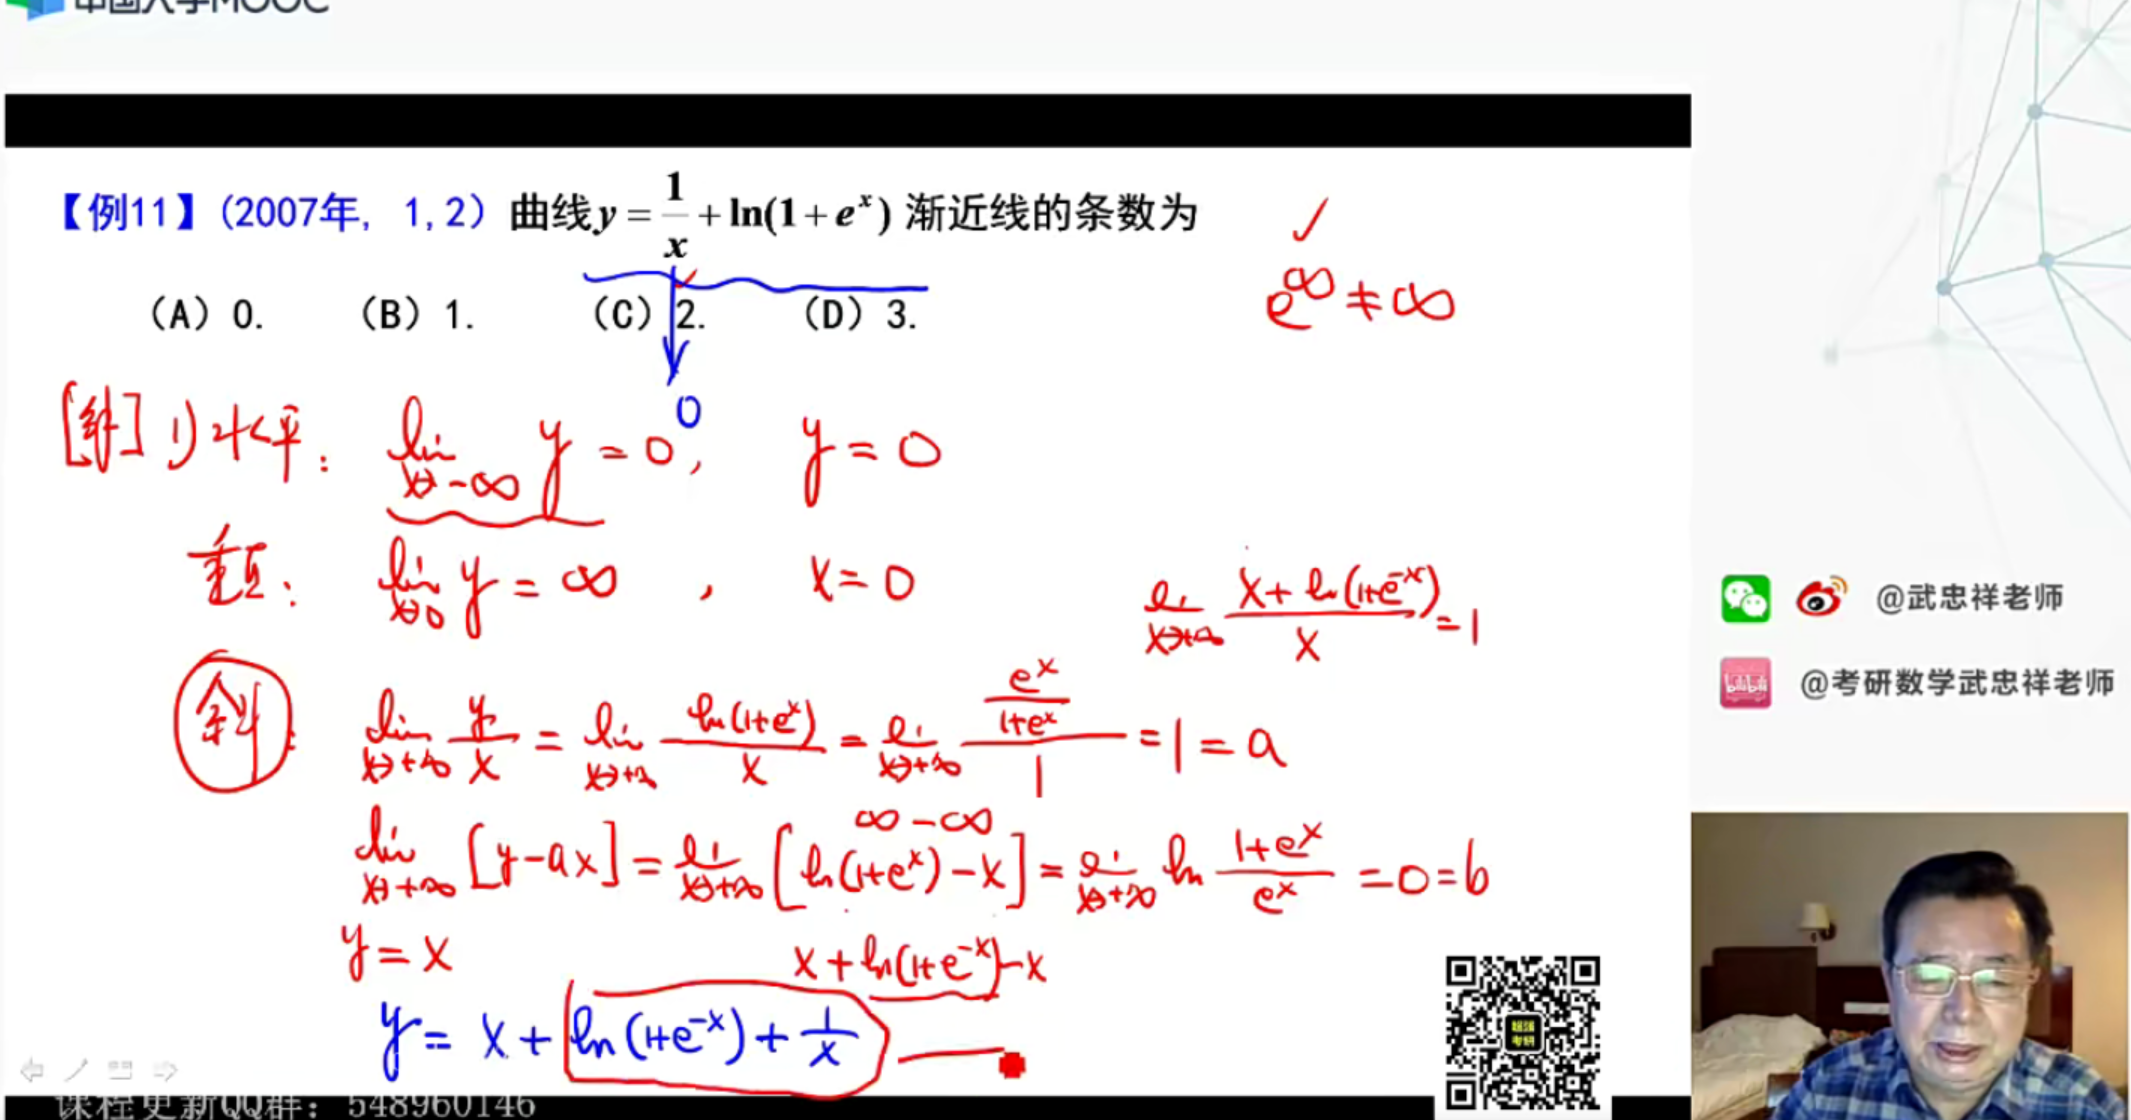 中国大学MOOC
【例11】(2007年, 1,2) 曲线 y = 1/x + ln(1 + e^x) 渐近线的条数为
(A) 0. (B) 1. (C) 2. (D) 3.
✓
e^∞ ≠ ∞
0
[解] 1) 水平: lim x→-∞ y = 0, y = 0
垂直: lim x→0 y = ∞, x = 0
lim x→+∞ (x + ln(1+e^-x))/x = 1
斜: lim x→+∞ y/x = lim x→+∞ ln(1+e^x)/x = lim x→+∞ (e^x/(1+e^x))/1 = 1 = a
∞ - ∞
lim x→+∞ [y-ax] = lim x→+∞ [ln(1+e^x) - x] = lim x→+∞ ln (1+e^x)/e^x = 0 = b
y = x
x + ln(1+e^-x) - x
y = x + ln(1+e^-x) + 1/x
@武忠祥老师
bilibili @考研数学武忠祥老师
课程更新QQ群: 548960146